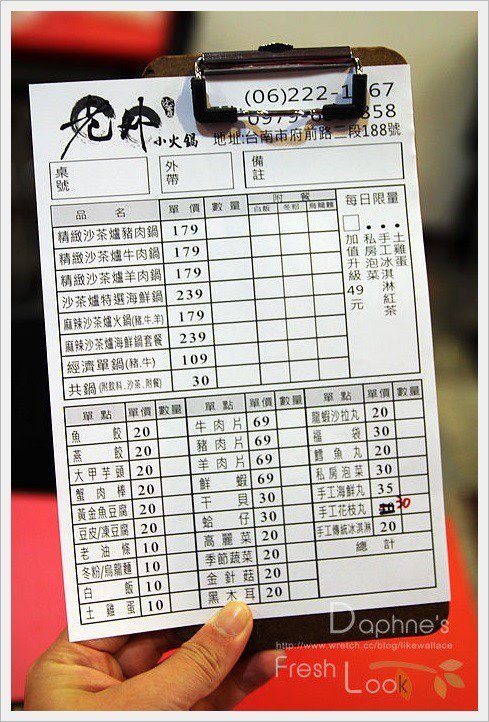 老井 小火鍋
(06)222-1
358
地址:台南市府前路二段188號
桌號
外帶
備註
品名 單價 數量 附餐 白飯 冬粉 烏龍麵
精緻沙茶爐豬肉鍋 179
精緻沙茶爐牛肉鍋 179
精緻沙茶爐羊肉鍋 179
沙茶爐特選海鮮鍋 239
麻辣沙茶爐火鍋(豬.牛.羊) 179
麻辣沙茶爐海鮮鍋套餐 239
經濟單鍋(豬.牛) 109
共鍋(附飲料.沙茶.附餐) 30
每日限量
•土雞蛋
•手工冰淇淋紅茶
•私房泡菜
□加值升級49元
單點 單價 數量
魚餃 20
燕餃 20
大甲芋頭 20
蟹肉棒 20
黃金魚豆腐 20
豆皮/凍豆腐 20
老油條 10
冬粉/烏龍麵 10
白飯 10
土雞蛋 10
單點 單價 數量
牛肉片 69
豬肉片 69
羊肉片 69
鮮蝦 69
干貝 30
蛤仔 30
高麗菜 20
季節蔬菜 20
金針菇 20
黑木耳 20
單點 單價 數量
龍蝦沙拉丸 20
福袋 30
鱈魚丸 20
私房泡菜 30
手工海鮮丸 35
手工花枝丸 30
手工傳統冰淇淋 20
總計
Daphne's
http://www.wretch.cc/blog/likewallace
Fresh Look